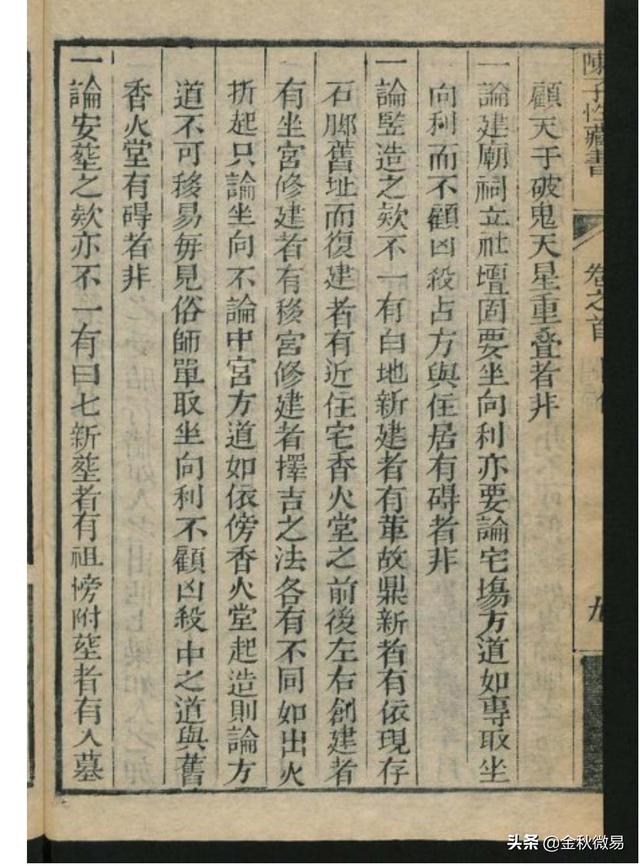 陳子性藏書
卷之首
九
顧天于破鬼天星重叠者非
一論建廟祠立社壇固要坐向利亦要論宅塲方道如專取坐
向利而不顧凶殺占方與住居有碍者非
一論竪造之欵不一有白地新建者有革故鼎新者有依現存
石脚舊址而復建者有近住宅香火堂之前後左右創建者
有坐宮修建者有移宮修建者擇吉之法各有不同如出火
折起只論坐向不論中宮方道如依傍香火堂起造則論方
道不可移易每見俗師單取坐向利不顧凶殺中之道與舊
香火堂有碍者非
一論安塟之欵亦不一有曰七新塟者有祖傍附塟者有入墓
头条 @金秋微易